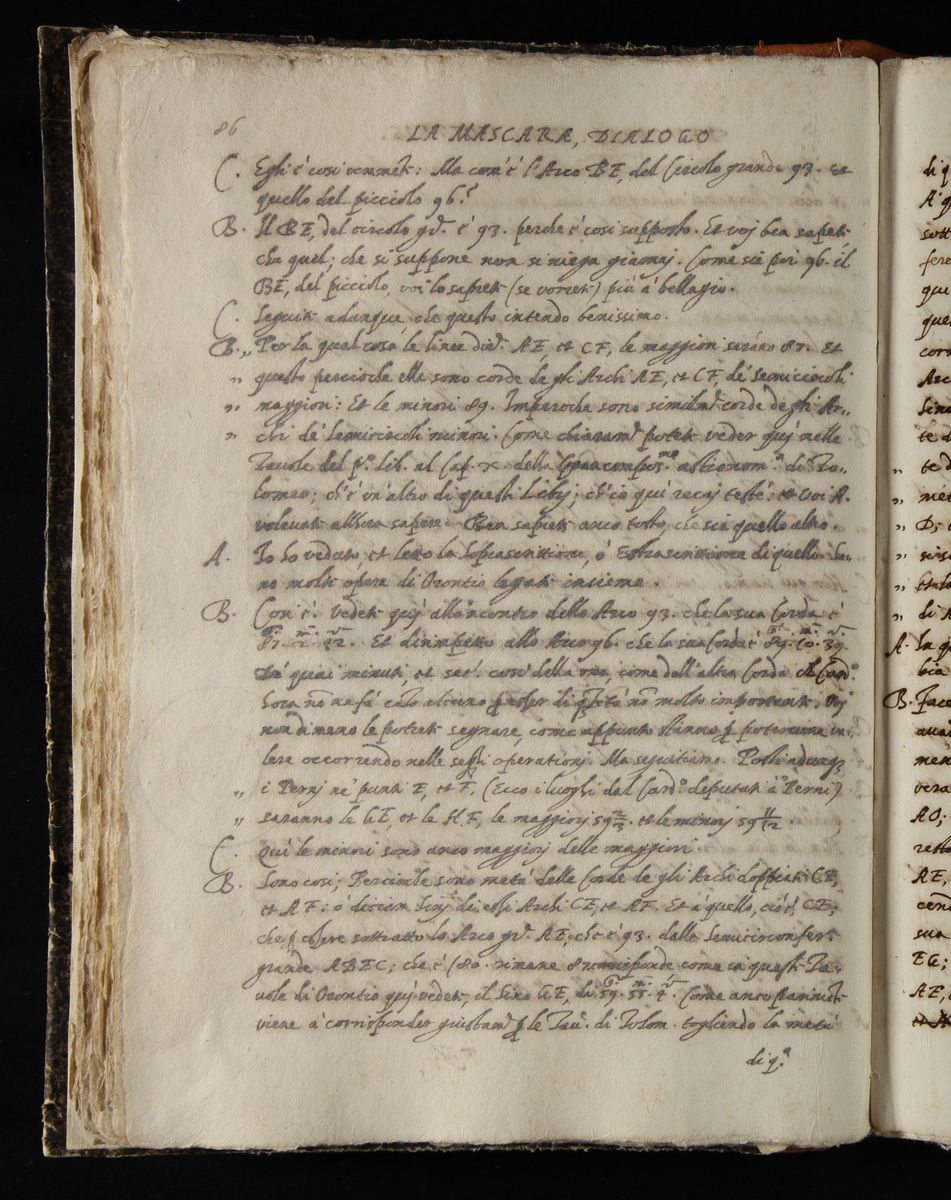 86
LA MASCARA, DIALOGO
C. Egli è così veramēte: Ma com'è l'Arco BE, del Circolo grande 93. et
quello del picciolo 96?
B. Il BE, del circolo grᵈ. è 93. perche è così supposto. Et voj ben sapete
che quel; che si suppone non si niega giamaj. Come sia poi 96. il
BE, del picciolo, voi lo saprete (se vorrete) più à bellagio.
C. Seguite adunque, che questo intendo benissimo.
B. „ Per la qual cosa le linee AE, et CF, le maggiori sarāno 87. Et
„ questo percioche elle sono corde de gli Archi AE, et CF, de' Semicircoli
„ maggiori: Et le minori 89. Imperoche sono similmᵗ corde de gli Ar-
„ chi de' Semicircoli minori. Come chiaramᵗ potete veder quj nelle
Tauole del pᵒ. lib. al Cap. x. della astronomᵃ. di To-
lomeo; ch'è un'altro di questi Libri; ch'io quì recaj testè: et voi A.
volevate allhora sapere. Ben sapete anco tosto, che sia quello altro.
A. Io hò veduto, et letto la Soprascrittione, ò Estrascrittione di quello. So-
no molte opere di Orontio legate insieme.
B. Così è. Vedete quj all'incontro dello Arco 93. che la sua Corda è
87. 2. 12. Et dirimpetto allo Arco 96. che la sua Corda è 89. 10. 39.
De' quai minuti et secᵈⁱ. così della una, come dall'altra Corda il Cardᵒ.
hora nō ne fà caso alcuno per esser di q̄tità nō molto importante. Voj
nondimeno le potete segnare, come appunto stanno
lere occorrendo nelle operationj. Ma seguitiamo. Posti adunq3
„ i Pernj ne' punti E, et F, (Ecco i luoghi dal Cardᵒ. deputati a' Perni)
„ saranno le GE, et le HF, le maggiorj 59 2/3. et le minorj 59 11/12.
C. Quì le minori sono anco maggiorj delle maggiori.
B. Sono così; Percioche sono metà delle Corde de gli Archi doppiati CE,
et AF: ò diciam Sinj di essi Archi CE, et AF. Et à quello, cioè, CE;
che sottratto lo Arco grᵈ. AE, che è 93. dalla Semicirconferᵃ.
grande ABEC; che è 180. rimane 87. corrisponde come in queste Ta-
uole di Orontio quj vedete, il Sino GE, di 59. 55. 4. Come anco parimēte
viene à corrisponder giustamᵗ le Tauᵉ. di Tolom. togliendo la metà
di qᵃ